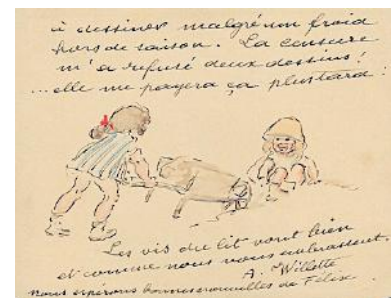 à dessiner malgré un froid
hors de saison. La censure
m'a refusé deux dessins!
...elle me payera ça plus tard!
Les vis du lit vont bien
et comme nous vous embrassent.
A. Willette
nous espérons bonnes nouvelles de Félix